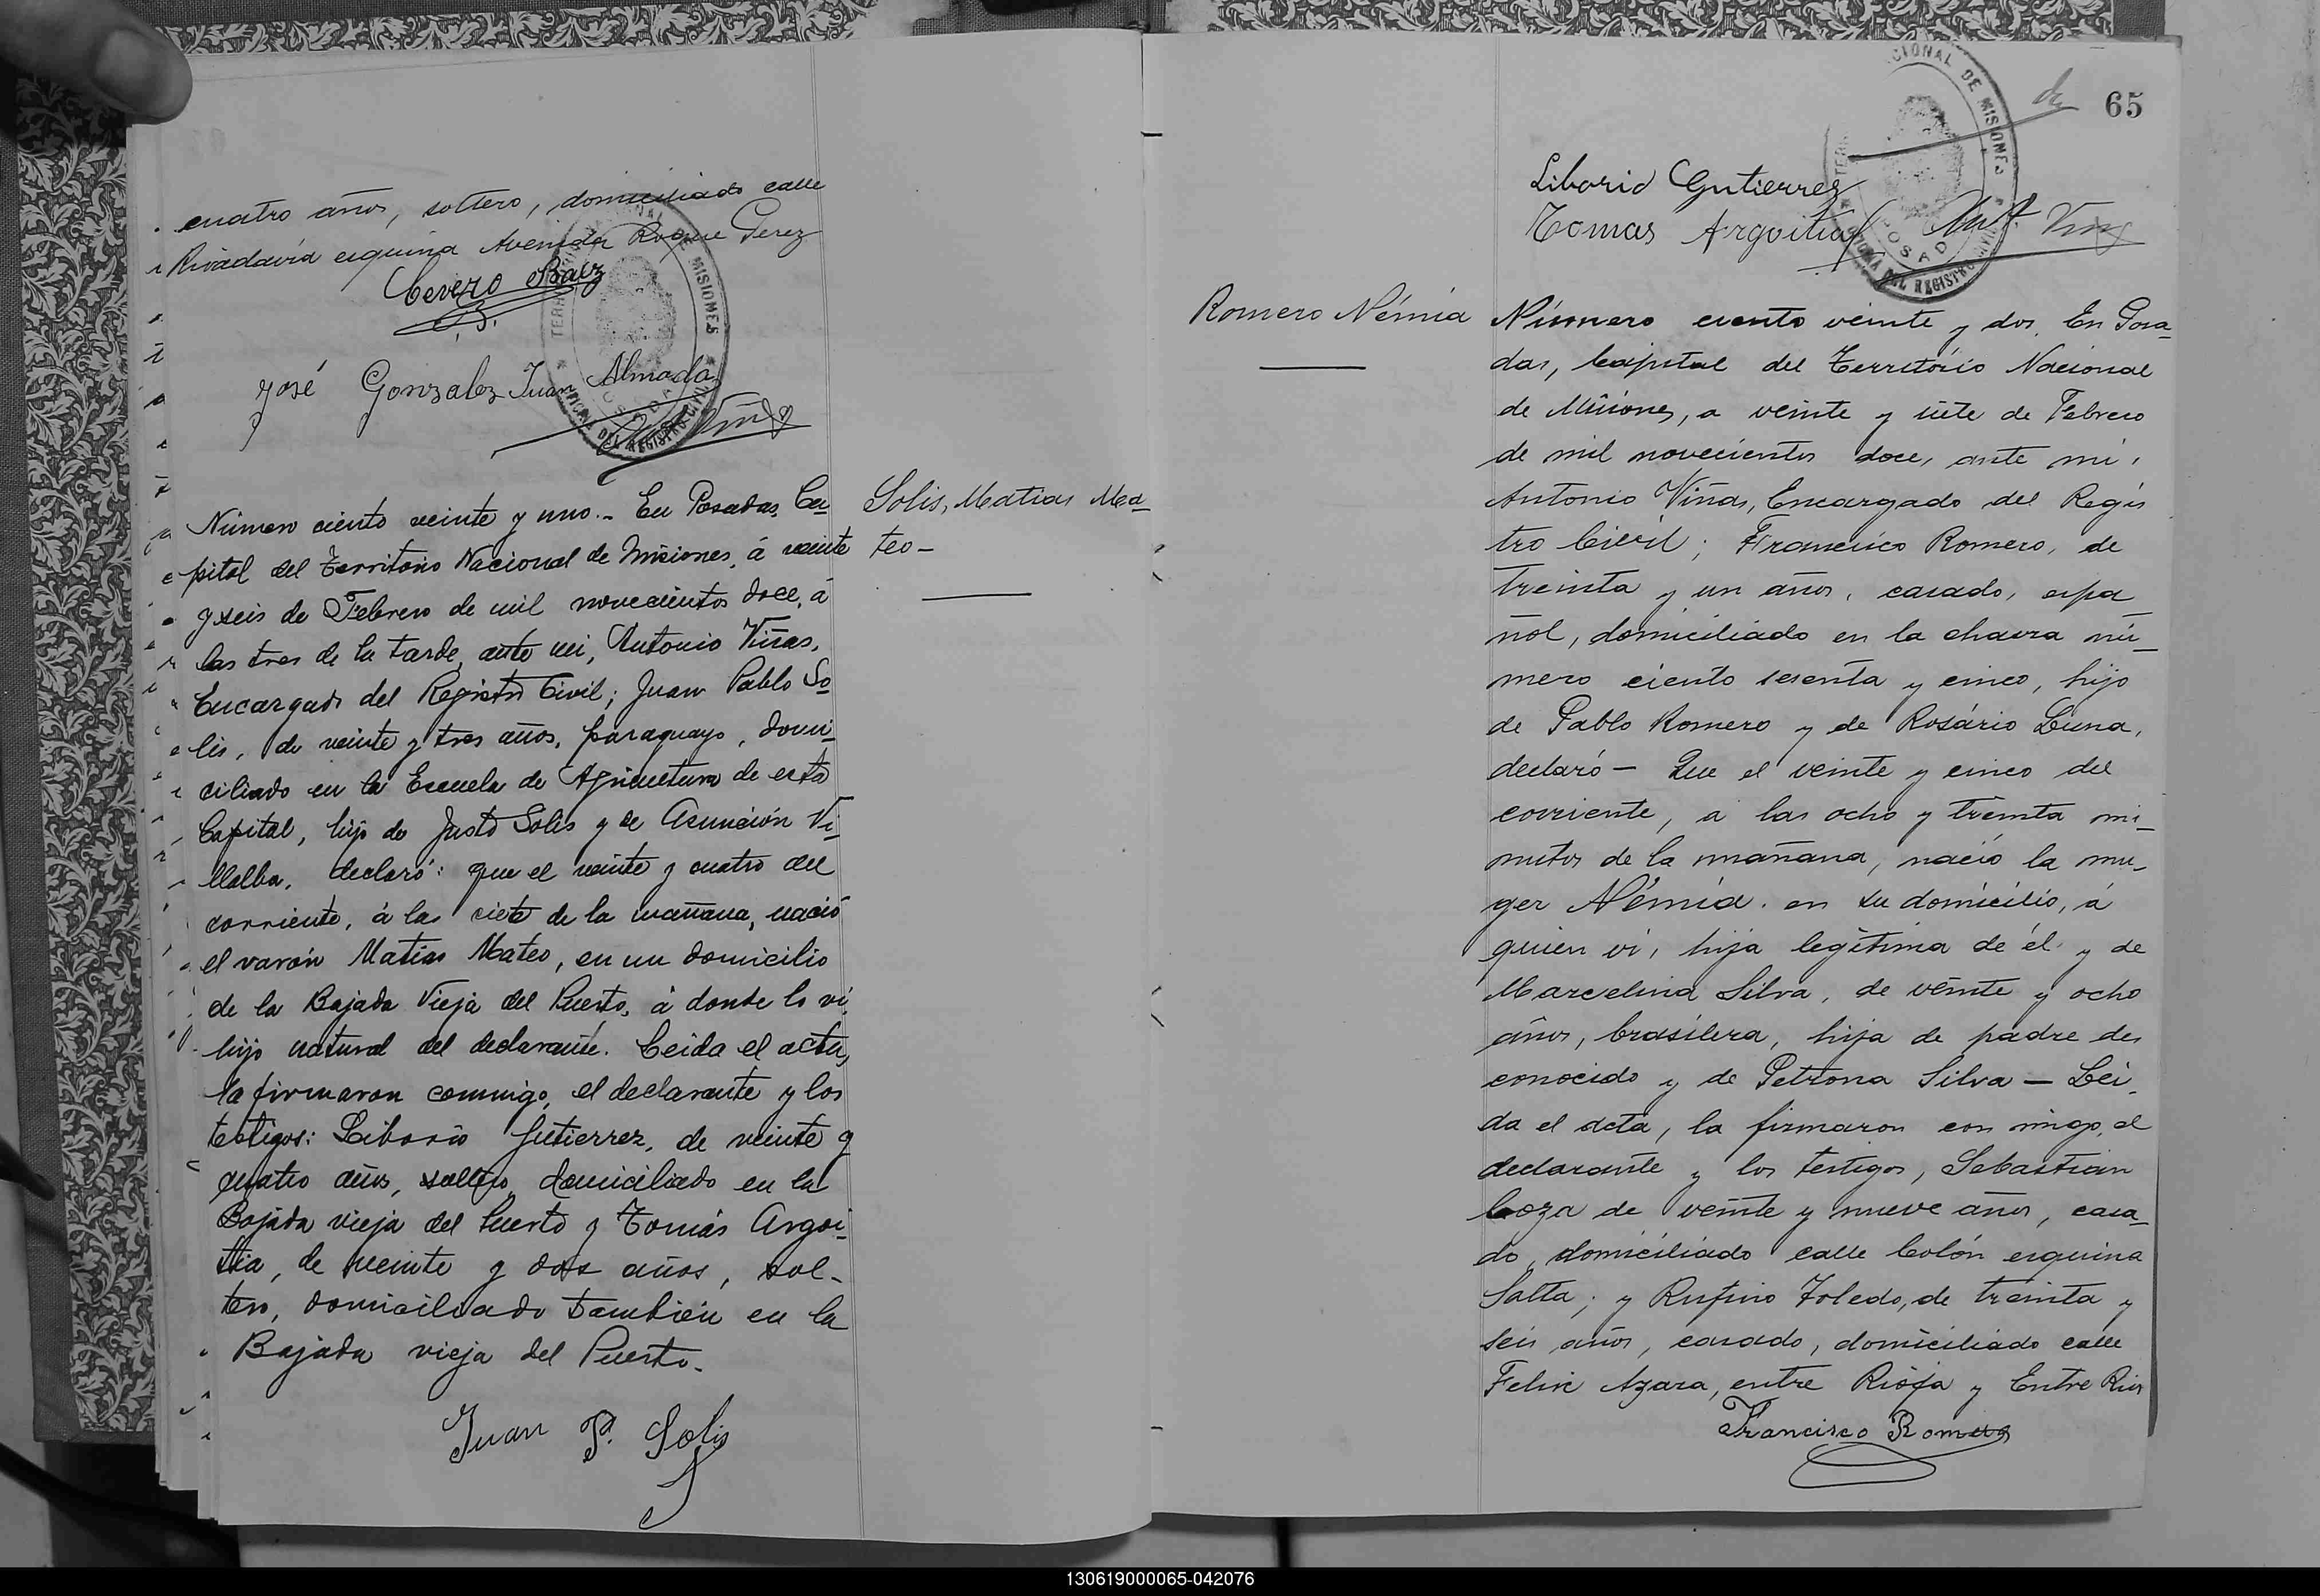 cuatro años, soltero, domiciliado calle
Rivadavia esquina Avenida Roque Perez
Cevero Baez
José Gonzalez Juan Almada
Número ciento veinte y uno.- En Posadas, Ca-
pital del Territorio Nacional de Misiones, á veinte
y seis de Febrero de mil novecientos doce, á
las tres de la tarde, ante mi, Antonio Viñas,
Encargado del Registro Civil; Juan Pablo So-
lis, de veinte y tres años, paraguayo, domi-
ciliado en la Escuela de Agricultura de esta
Capital, hijo de Justo Solis y de Asunción Vi-
llalba, declaró: que el veinte y cuatro del
corriente, á las siete de la mañana, nació
el varón Matias Mateo, en un domicilio
de la Bajada Vieja del Puerto, á donde lo ví,
hijo natural del declarante. Leida el acta,
la firmaron conmigo, el declarante y los
testigos: Liborio Gutierrez, de veinte y
cuatro años, soltero, domiciliado en la
Bajada vieja del Puerto y Tomás Argoi-
tia, de veinte y dos años, sol-
tero, domiciliado tambien en la
Bajada vieja del Puerto.
Juan P. Solis
Solis, Matias Ma-
teo-
65
CIONAL DE MISIONES
POSADAS
DEL REGISTRO CIVIL
Liborio Gutierrez
Tomas Argoitia Ant. Viñas
Romero Némia
Número ciento veinte y dos. En Posa-
das, Capital del Território Nacional
de Misiones, a veinte y siete de Febrero
de mil novecientos doce, ante mi,
Antonio Viñas, Encargado del Regis
tro Civil; Francisco Romero, de
treinta y un años, casado, espa
ñol, domiciliado en la chacra nú-
mero ciento sesenta y cinco, hijo
de Pablo Romero y de Rosário Luna,
declaró- Que el veinte y cinco del
corriente, a las ocho y treinta mi-
nutos de la mañana, nació la mu-
ger Némia. en su domicilio, á
quien ví, hija legitima de él y de
Marcelina Silva, de veinte y ocho
años, brasilera, hija de padre des
conocido y de Petrona Silva - Lei-
da el acta, la firmaron con migo, el
declarante y los testigos, Sebastian
Coza de veinte y nueve años, casa-
do, domiciliado calle Colón esquina
Salta; y Rufino Toledo, de treinta y
seis años, casado, domiciliado calle
Felix Azara, entre Rioja y Entre Rios
Francisco Romero
130619000065-042076